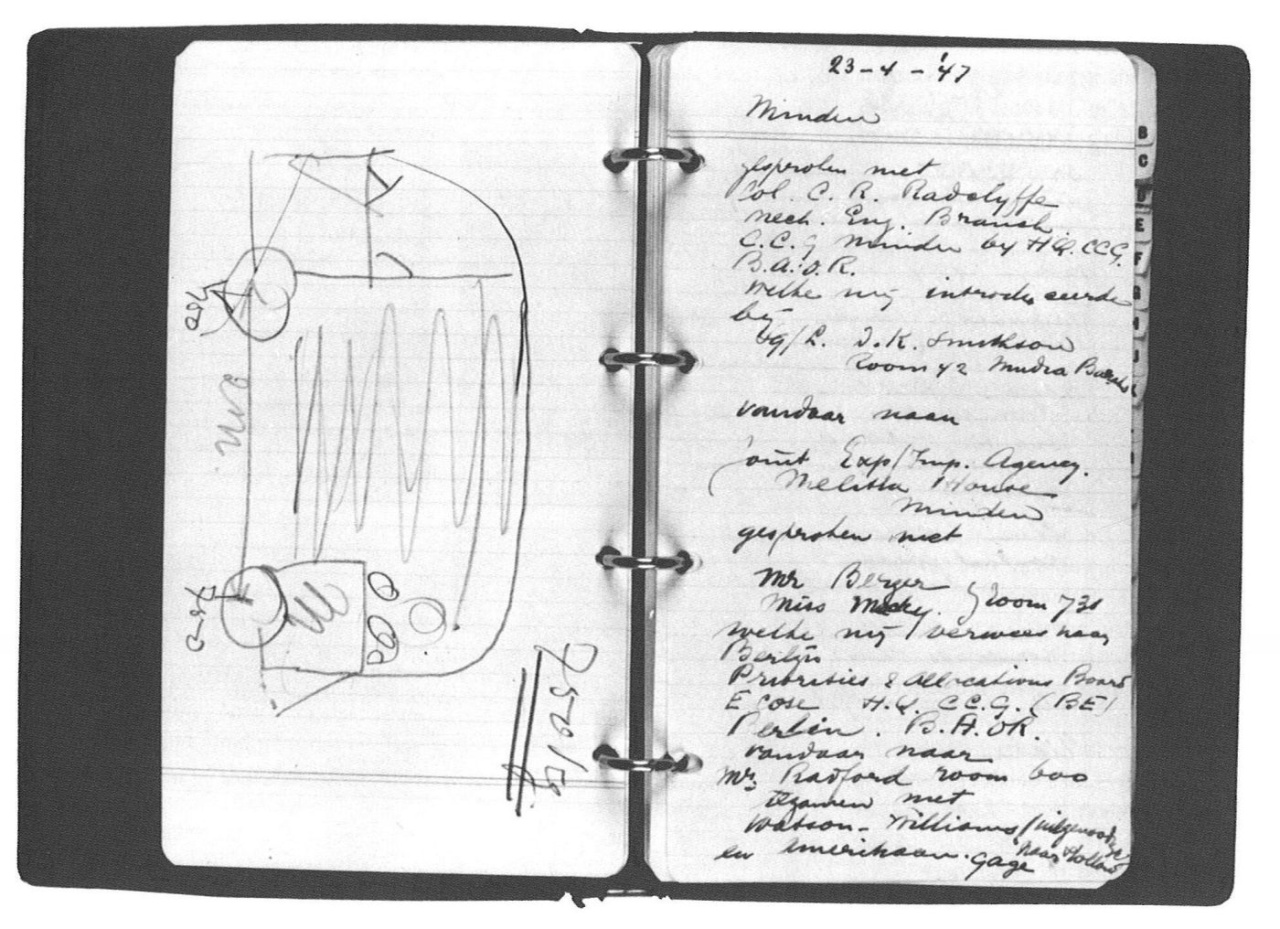 750
2 m.
750
1500 kg
23-4-'47
Minden
gesproken met
Col. C. R. Radclyffe
Mech. Eng. Branch.
C.C.G Minden by H.Q. CCG.
B.A.O.R.
welke mij introduceerde
bij
I.K. Smithson
Room 42 Mudra
vandaar naar
Joint Exp/Imp. Agency.
Melitta House
Minden
gesproken met
Mr Berger
Miss room 731
welke mij verwees naar
Berlijn
Priorities & Allocations Board
E Cose H.Q. CC.G. (BE)
Berlin. B.A.OR.
vandaar naar
Mr Radford room 600
tezamen met
Watson-Williams (uitgenoodigd
naar Holland
en Amerikaan. Gage
B
C
D
E
F
G
H
J